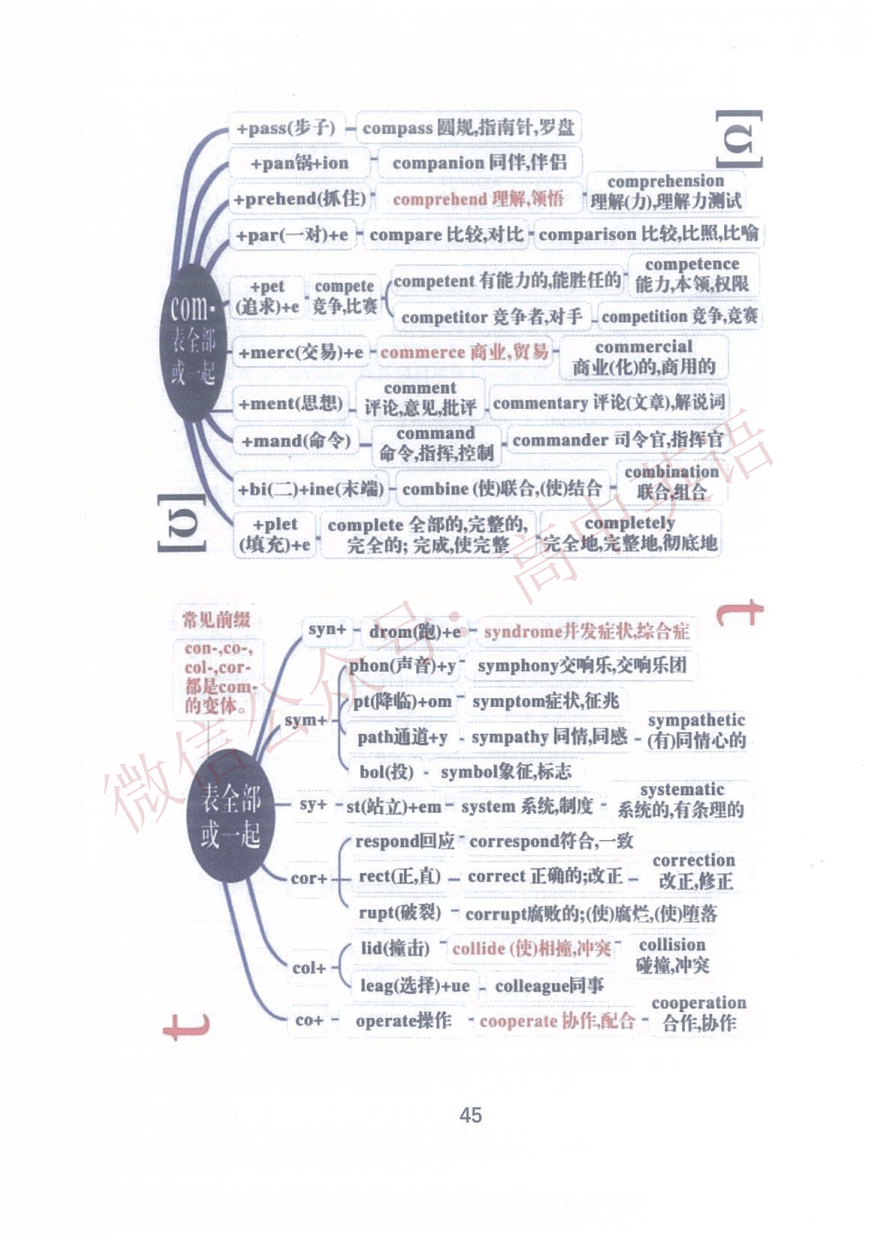 +pass(步子)
compass 圆规,指南针,罗盘
[Ω]
+pan锅+ion
companion 同伴,伴侣
+prehend(抓住)
comprehend 理解,领悟
comprehension
理解(力),理解力测试
+par(一对)+e
compare 比较,对比
comparison 比较,比照,比喻
com-
表全部
或一起
+pet
(追求)+e
compete
竞争,比赛
competent 有能力的,能胜任的
competence
能力,本领,权限
competitor 竞争者,对手
competition 竞争,竞赛
+merc(交易)+e
commerce 商业,贸易
commercial
商业(化)的,商用的
+ment(思想)
comment
评论,意见,批评
commentary 评论(文章),解说词
+mand(命令)
command
命令,指挥,控制
commander 司令官,指挥官
+bi(二)+ine(末端)
combine (使)联合,(使)结合
combination
联合,组合
[Ʊ]
+plet
(填充)+e
complete 全部的,完整的,
完全的; 完成,使完整
completely
完全地,完整地,彻底地
t
常见前缀
con-,co-,
col-,cor-
都是com-
的变体。
syn+
drom(跑)+e
syndrome并发症状,综合症
sym+
phon(声音)+y
symphony交响乐,交响乐团
pt(降临)+om
symptom症状,征兆
path通道+y
sympathy 同情,同感
sympathetic
(有)同情心的
bol(投)
symbol象征,标志
表全部
或一起
sy+
st(站立)+em
system 系统,制度
systematic
系统的,有条理的
cor+
respond回应
correspond符合,一致
rect(正,直)
correct 正确的;改正
correction
改正,修正
rupt(破裂)
corrupt腐败的;(使)腐烂,(使)堕落
col+
lid(撞击)
collide (使)相撞,冲突
collision
碰撞,冲突
leag(选择)+ue
colleague同事
t
co+
operate操作
cooperate 协作,配合
cooperation
合作,协作
微信公众号：高中英语
45